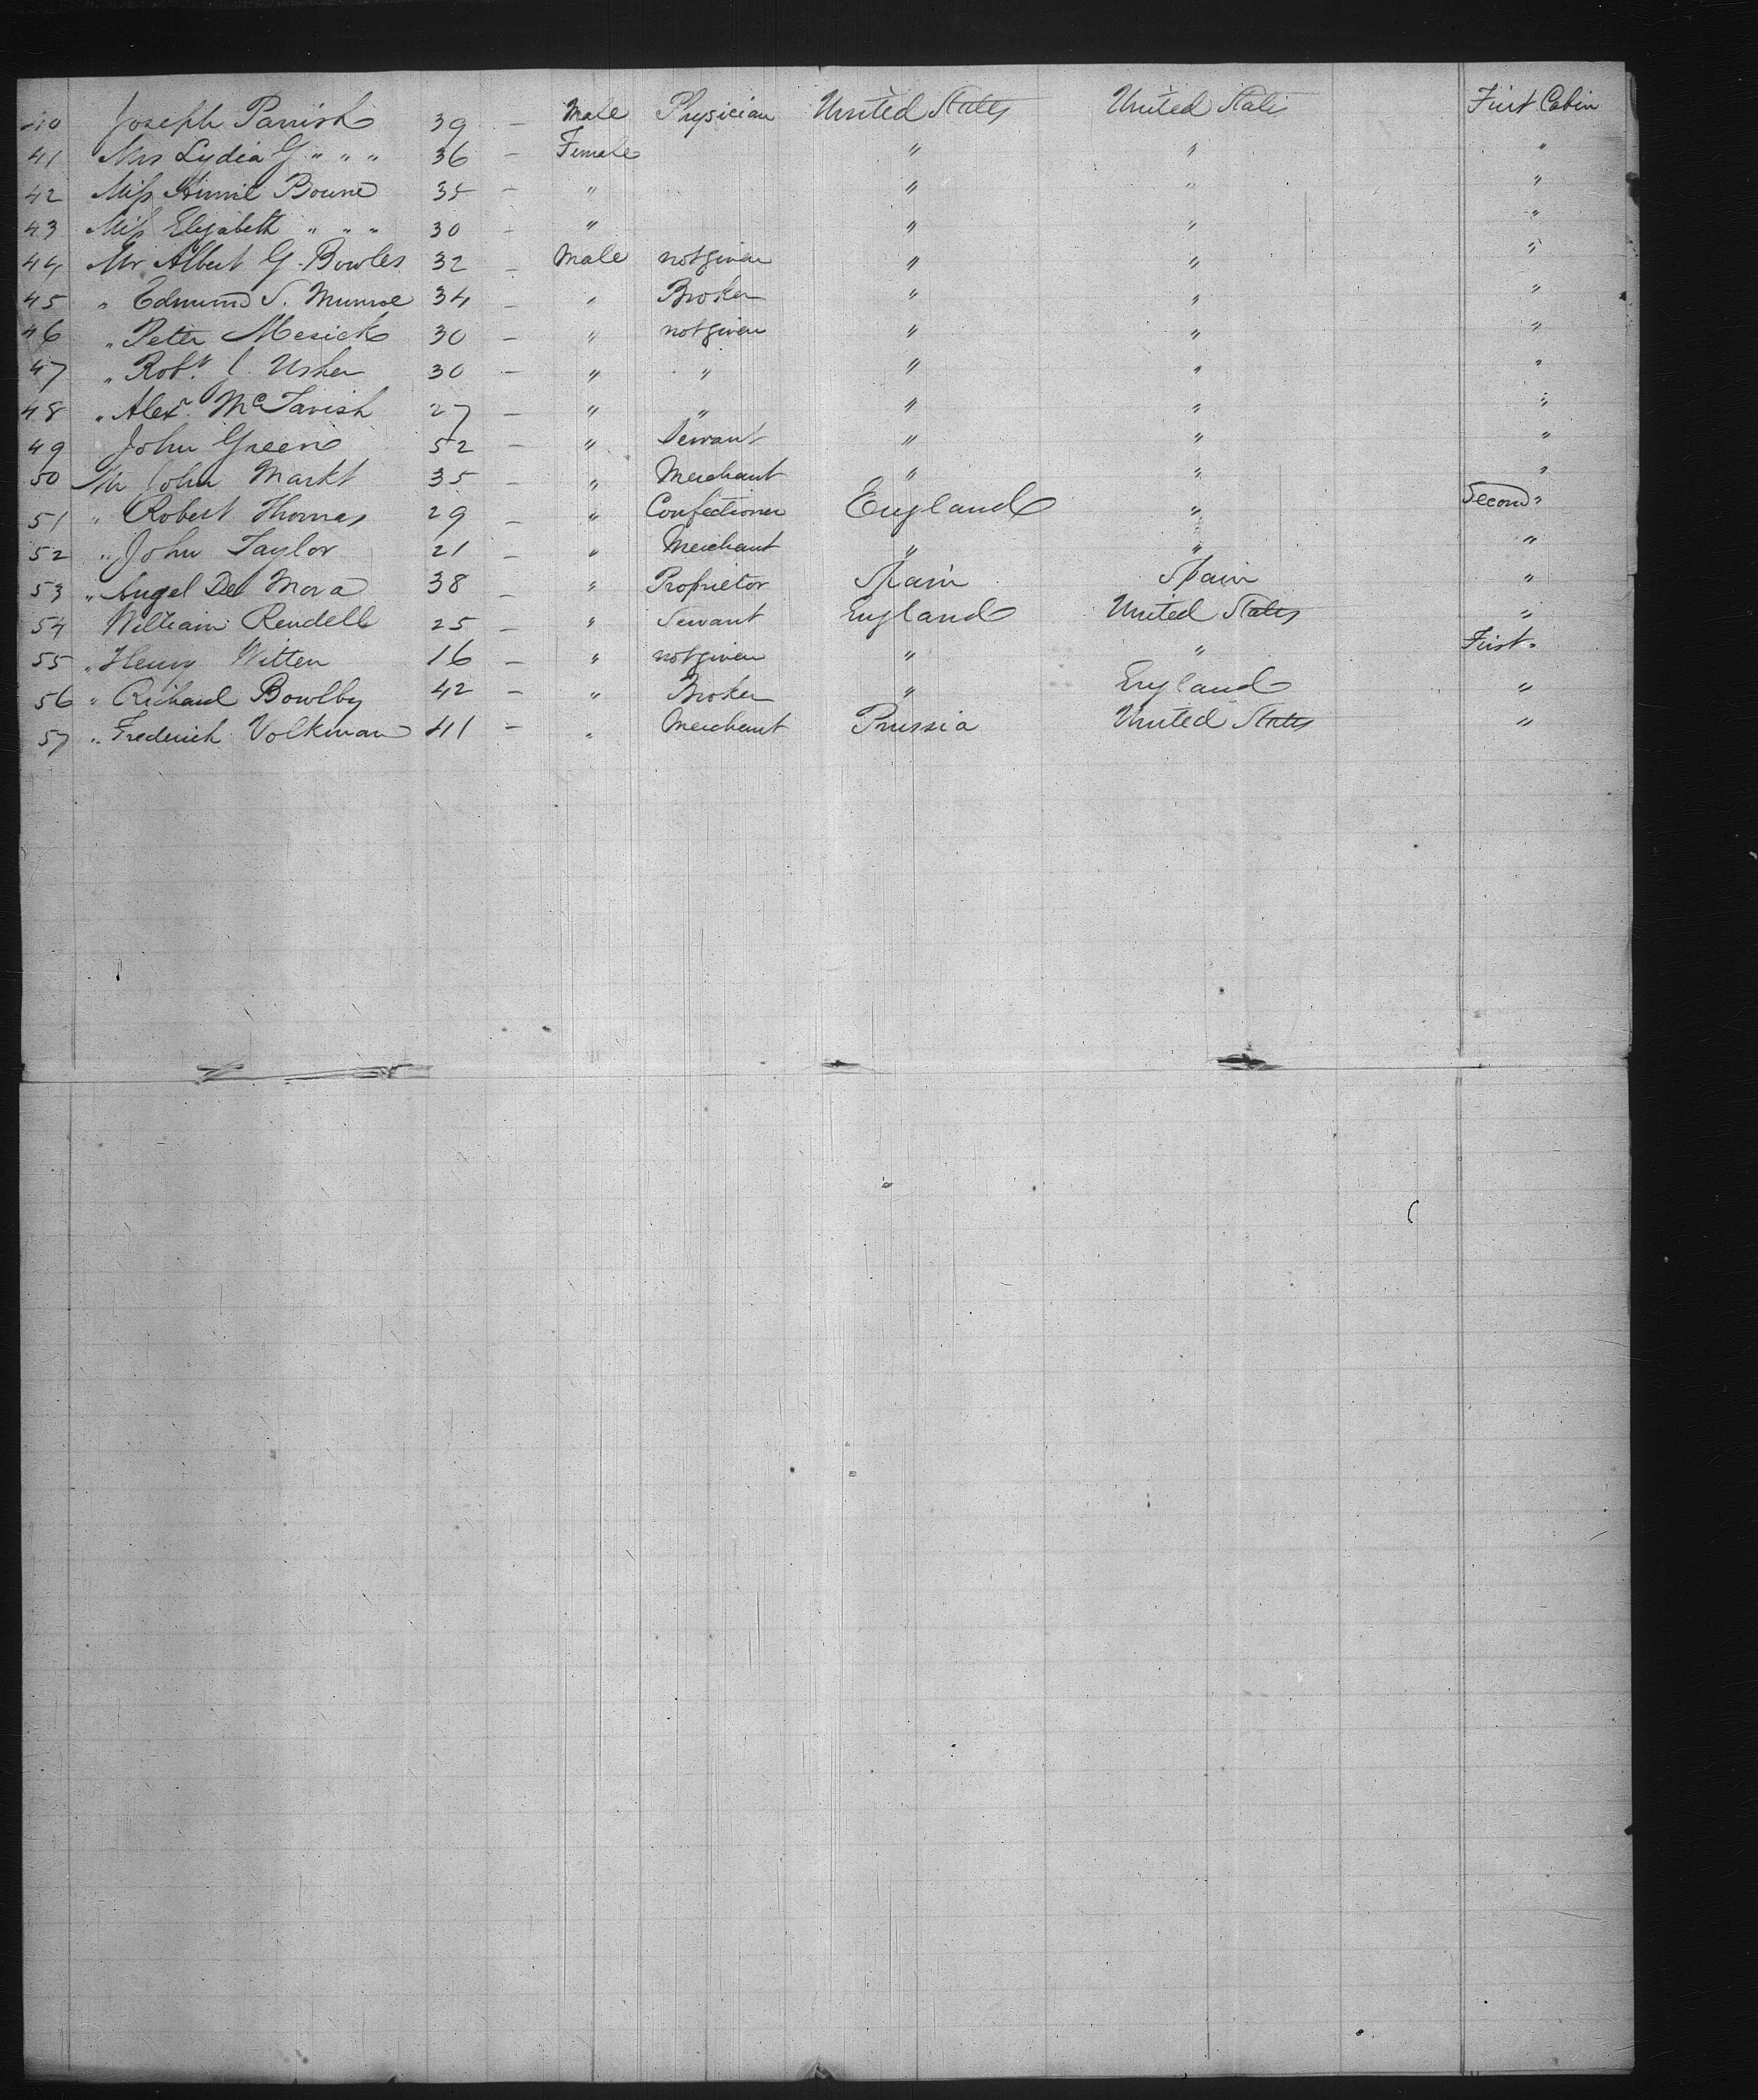 40 Joseph Parrish 39 — Male Physician United States United States First Cabin
41 Mrs Lydia G " " " 36 — Female " " "
42 Miss Annie Bowne 35 — " " " "
43 Miss Elizabeth " " " 30 — " " " "
44 Mr Albert G. Bowles 32 — Male not given " " "
45 " Edmund S. Munroe 34 — " Broker " " "
46 " Peter Mesick 30 — " not given " " "
47 " Robt. C. Usher 30 — " " " " "
48 " Alexr. McTavish 27 — " " " " "
49 John Green 52 — " Servant " " "
50 Mr John Markt 35 — " Merchant " " "
51 " Robert Thomas 29 — " Confectioner England " Second "
52 " John Taylor 21 — " Merchant " " "
53 " Angel Del Mora 38 — " Proprietor Spain Spain "
54 William Rendell 25 — " Servant England United States "
55 " Henry Witten 16 — " not given " " First "
56 " Richard Bowlby 42 — " Broker " England "
57 " Frederich Volkman 41 — " Merchant Prussia United States "